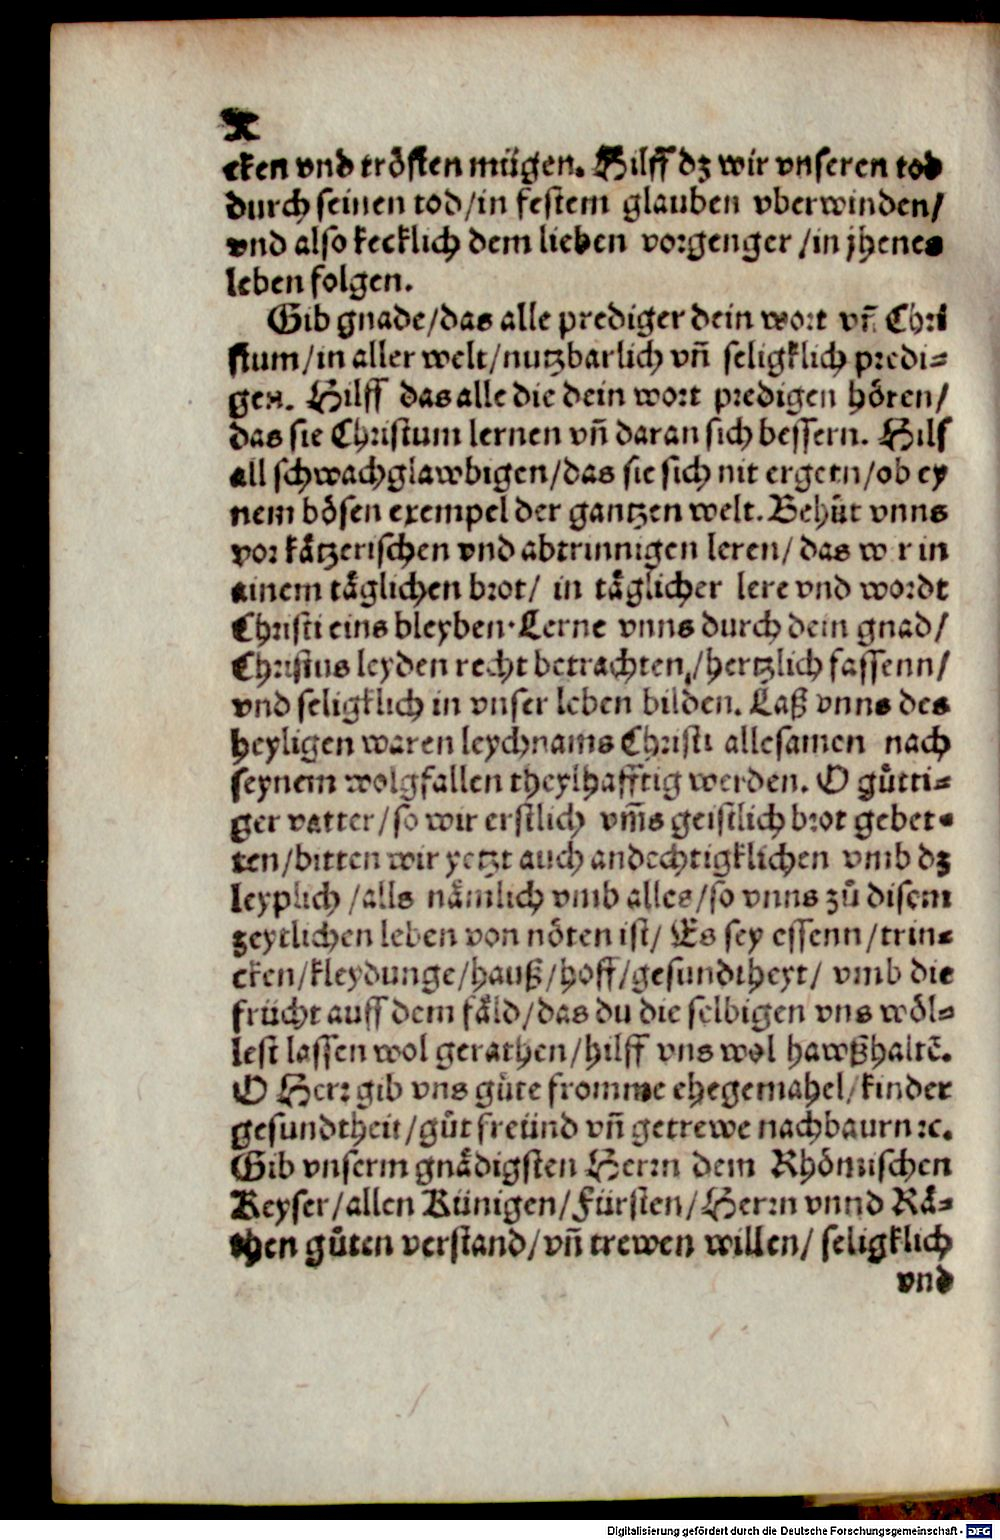 X
cken vnd trösten mügen. Hilff dz wir vnseren tod
durch seinen tod/in festem glauben vberwinden/
vnd also kecklich dem lieben vorgenger/in jhenes
leben folgen.
Gib gnade/das alle prediger dein wort vñ Chri
stum/in aller welt/nutzbarlich vñ seligklich predi=
gen. Hilff das alle die dein wort predigen hören/
das sie Christum lernen vñ daran sich bessern. Hilf
all schwachglawbigen/das sie sich nit ergern/ob ey
nem bösen exempel der gantzen welt. Behuͤt vnns
vor kaͤtzerischen vnd abtrinnigen leren/ das w r in
einem taͤglichen brot/ in taͤglicher lere vnd wordt
Christi eins bleyben. Lerne vnns durch dein gnad/
Christus leyden recht betrachten,/hertzlich fassenn/
vnd seligklich in vnser leben bilden. Laß vnns des
heyligen waren leychnams Christi allesamen nach
seynem wolgfallen theylhafftig werden. O guͤtti=
ger vatter/so wir erstlich vm̃s geistlich brot gebet=
ten/bitten wir yetzt auch andechtigklichen vmb dz
leyplich/alls naͤmlich vmb alles/so vnns zuͦ disem
zeytlichen leben von nöten ist/ Es sey essenn/trin=
cken/kleydunge/hauß/hoff/gesundtheyt/ vmb die
frücht auff dem faͤld/das du die selbigen vns wöl=
lest lassen wol gerathen/hilff vns wol hawßhaltē.
O Herr gib vns guͤte fromme ehegemahel/kinder
gesundtheit/guͦt freünd vñ getrewe nachbaurn ꝛc.
Gib vnserm gnaͤdigsten Herrn dem Rhömischen
Keyser/allen Künigen/Fürsten/Herrn vnnd Raͤ=
then guͦten verstand/vñ trewen willen/ seligklich
vnd
Digitalisierung gefördert durch die Deutsche Forschungsgemeinschaft - DFG